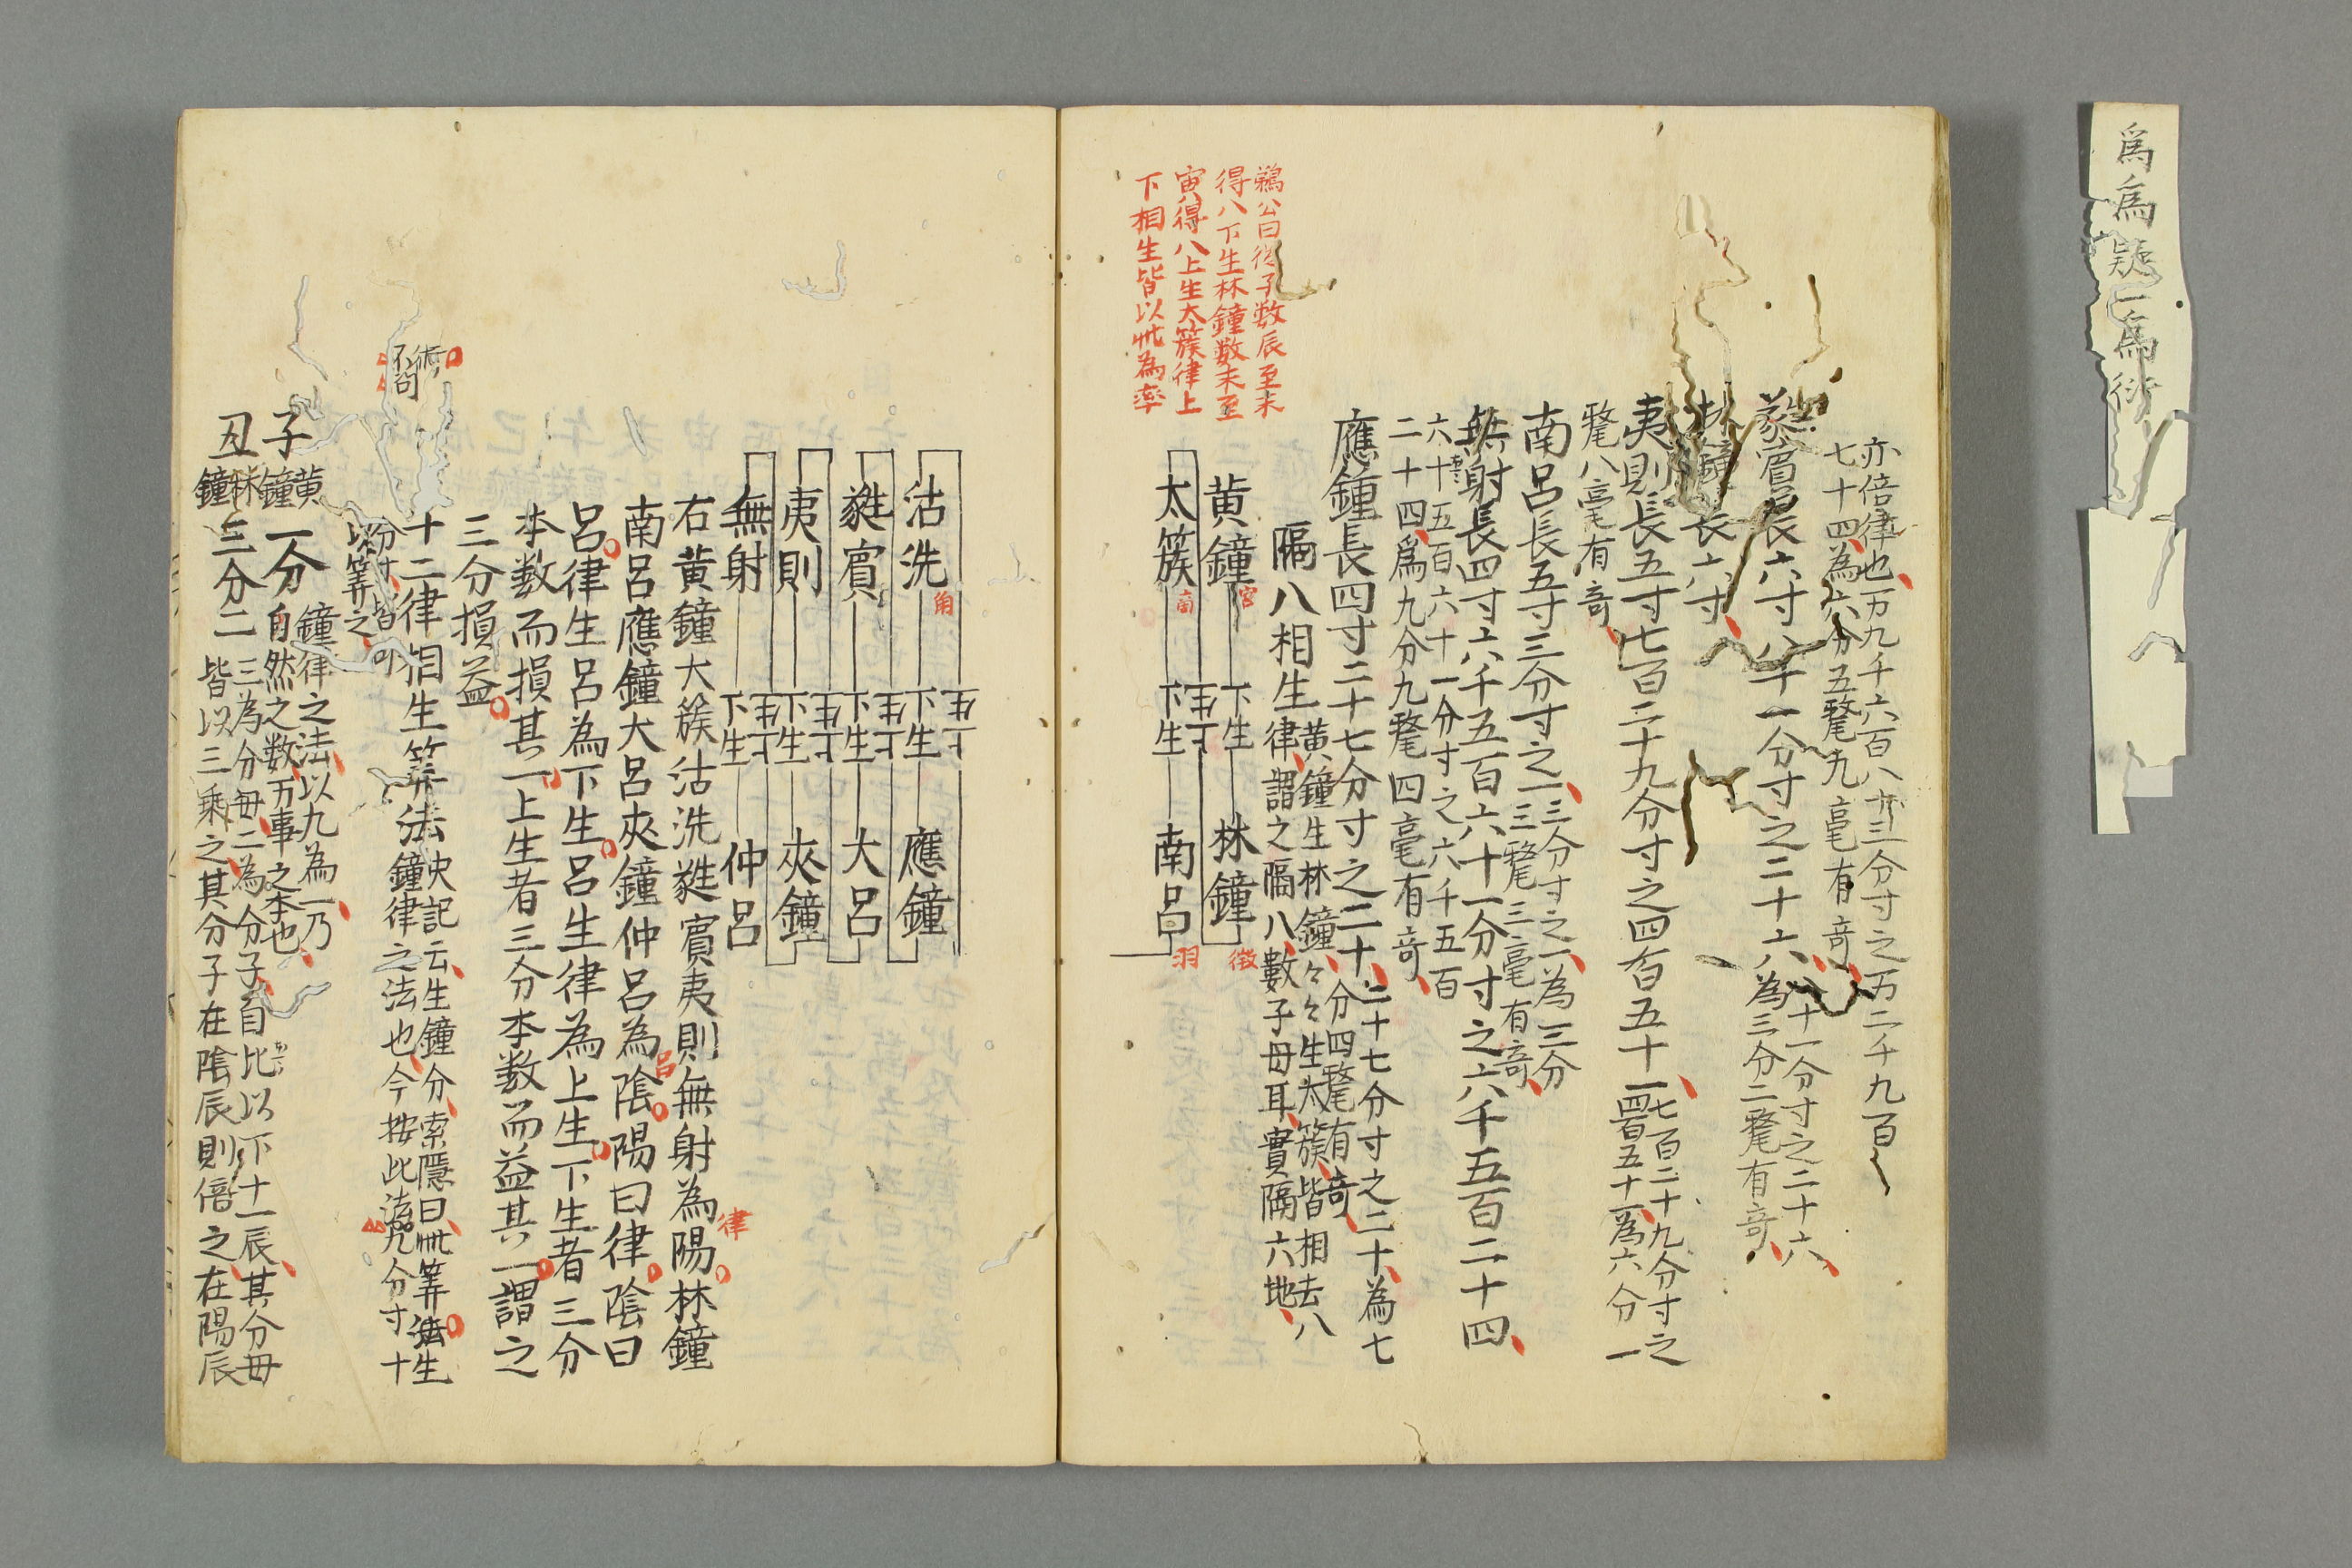 爲為疑一為衍
亦倍律也万九千六百八十三分寸之万二千九百
七十四為六分五氂九毫有竒
蕤賓長六寸八十一分寸之二十六
八十一分寸之二十六
為三分二氂有竒
林鐘長六寸
夷則長五寸七百二十九分寸之四百五十一
七百二十九分寸之
四百五十一為六分一
氂八毫有竒
南呂長五寸三分寸之一
三分寸之一為三分
三氂三毫有竒
無射長四寸六千五百六十一分寸之六千五百二十四
六千五百六十一分寸之六千五百
二十四爲九分九氂四毫有竒
應鍾長四寸二十七分寸之二十
二十七分寸之二十為七
分四氂有竒
隔八相生
黄鐘生林鐘々々生太簇皆相去八
律謂之隔八數子母耳實隔六地
鶴公曰從子数辰至未
得八下生林鐘数未至
寅得八上生大簇律上
下相生皆以此為率
黄鐘 宮 下生 林鐘 徴
太簇 商 下生 南呂 羽
沽洗 角 下生 應鐘
蕤賓 下生 大呂
夷則 下生 夾鐘
無射 下生 仲呂
右黄鐘大簇沽洗蕤賓夷則無射為陽林鐘
律
南呂應鐘大呂夾鐘仲呂為陰陽曰律陰曰
呂
呂律生呂為下生呂生律為上生下生者三分
本数而損其一上生者三分本数而益其一謂之
三分損益
十二律相生筭法
史記云生鐘分索隱曰此筭法生
鐘律之法也今按此法九分寸十
分寸皆可
以筭之
術
子 黄鐘 一分
鐘律之法以九為一乃
自然之数万事之本也
丑 林鐘 三分二
三為分毋二為分子自比以下十一辰其分毋
皆以三乘之其分子在陰辰則倍之在陽辰